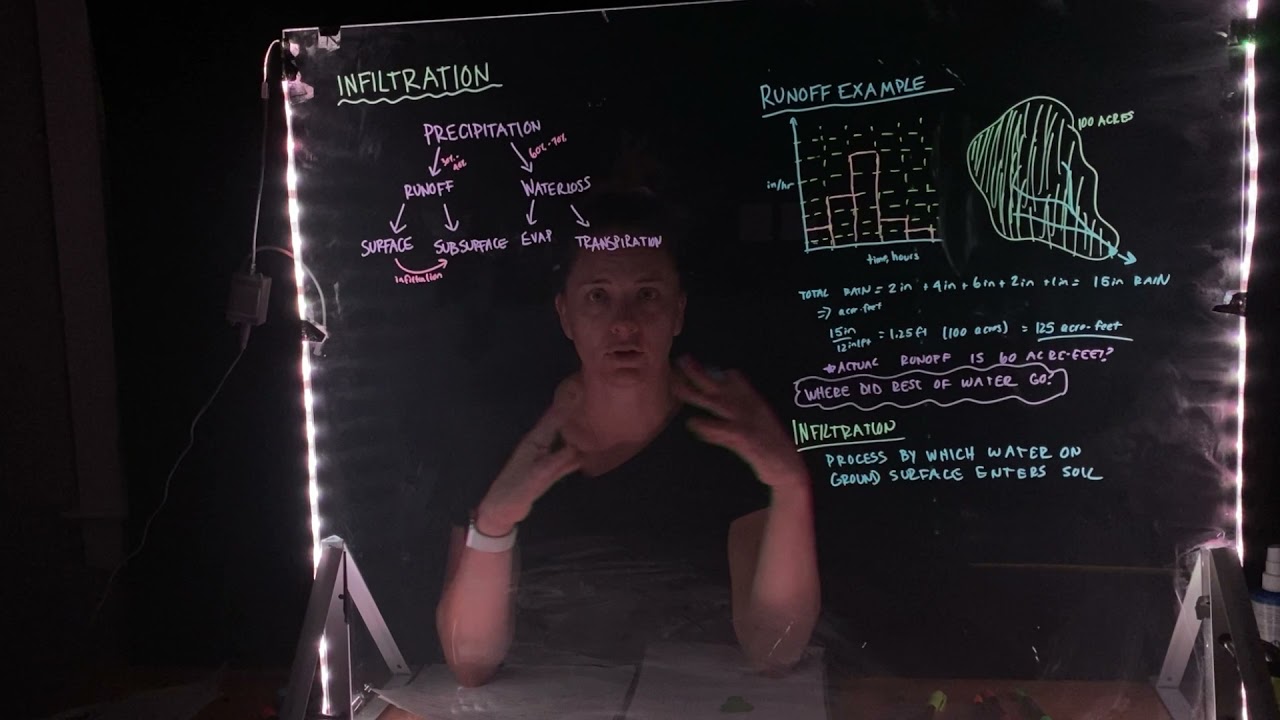 INFILTRATION
PRECIPITATION
30%-40%
60%-70%
RUNOFF
WATERLOSS
SURFACE
SUBSURFACE
EVAP
TRANSPIRATION
infiltration
RUNOFF EXAMPLE
in/hr
time, hours
100 ACRES
TOTAL RAIN = 2in + 4in + 6in + 2in + 1in = 15in RAIN
=> acre-feet
15in
12in/ft
= 1.25 ft (100 acres) = 125 acre-feet
*ACTUAL RUNOFF IS 60 ACRE-FEET?
WHERE DID REST OF WATER GO?
INFILTRATION
PROCESS BY WHICH WATER ON
GROUND SURFACE ENTERS SOIL